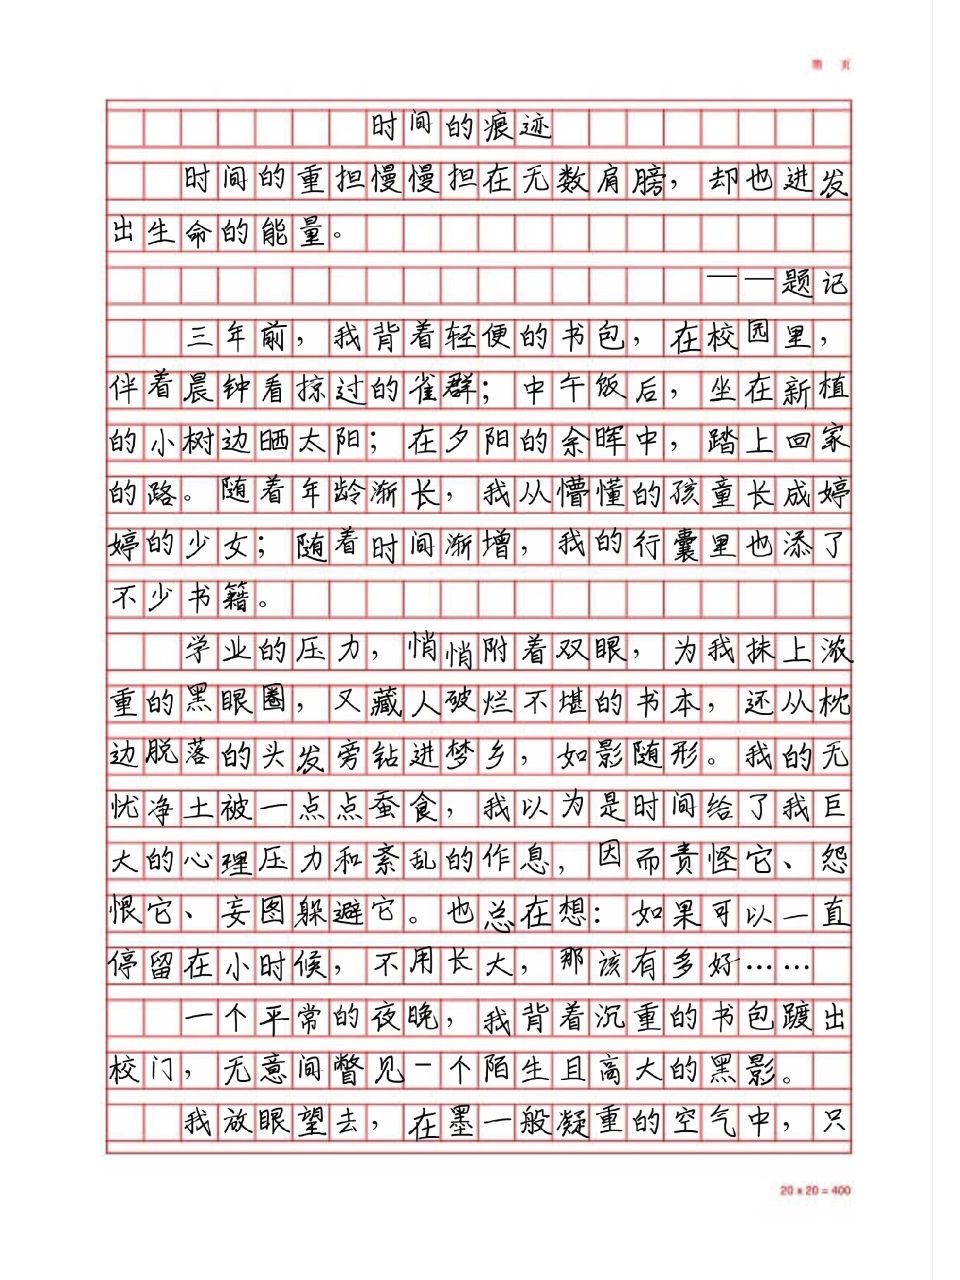 第 页
时间的痕迹
时间的重担慢慢担在无数肩膀，却也迸发
出生命的能量。
——题记
三年前，我背着轻便的书包，在校园里，
伴着晨钟看掠过的雀群；中午饭后，坐在新植
的小树边晒太阳；在夕阳的余晖中，踏上回家
的路。随着年龄渐长，我从懵懂的孩童长成婷
婷的少女；随着时间渐增，我的行囊里也添了
不少书籍。
学业的压力，悄悄附着双眼，为我抹上浓
重的黑眼圈，又藏人破烂不堪的书本，还从枕
边脱落的头发旁钻进梦乡，如影随形。我的无
忧净土被一点点蚕食，我以为是时间给了我巨
大的心理压力和紊乱的作息，因而责怪它、怨
恨它、妄图躲避它。也总在想：如果可以一直
停留在小时候，不用长大，那该有多好……
一个平常的夜晚，我背着沉重的书包踱出
校门，无意间瞥见一个陌生且高大的黑影。
我放眼望去，在墨一般凝重的空气中，只
20×20=400